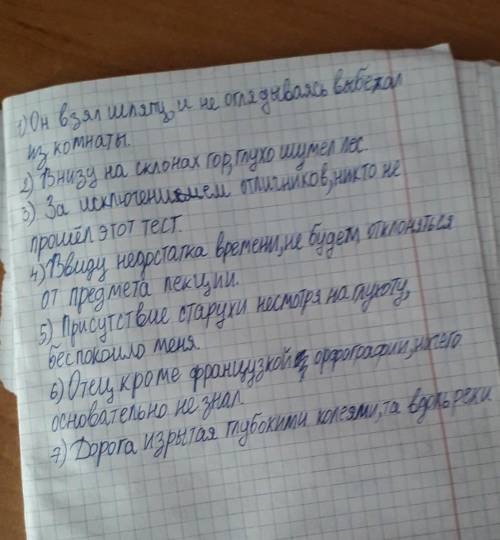 1) Он взял шляпу, и не оглядываясь выбежал
из комнаты.
2) Внизу на склонах гор, глухо шумел лес.
3) За исключением отличников, никто не
прошёл этот тест.
4) Ввиду недостатка времени, не будем отклоняться
от предмета лекции.
5) Присутствие старухи несмотря на глухоту,
беспокоило меня.
6) Отец, кроме французкой орфографии, ничего
основательно не знал.
7) Дорога изрытая глубокими колеями, та вдоль реки